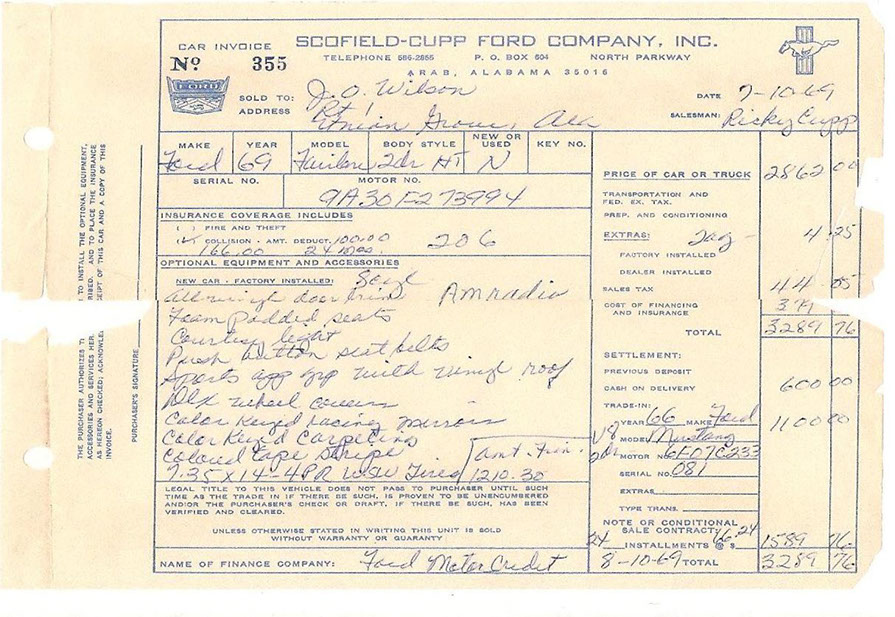 CAR INVOICE
Nº 355
SCOFIELD-CUPP FORD COMPANY, INC.
TELEPHONE 586-2855 P. O. BOX 604 NORTH PARKWAY
ARAB, ALABAMA 35016
FORD
SOLD TO: J. O. Wilson
DATE 7-10-69
ADDRESS Rt 1
Union Grove, Ala
SALESMAN: Ricky Cupp
MAKE YEAR MODEL BODY STYLE NEW OR USED KEY NO.
Ford 69 Fairlane 2dr HT N
SERIAL NO. MOTOR NO.
9A30F273994
INSURANCE COVERAGE INCLUDES
( ) FIRE AND THEFT
(✓) COLLISION - AMT. DEDUCT. 100.00 206
166.00 24 mos.
OPTIONAL EQUIPMENT AND ACCESSORIES
NEW CAR - FACTORY INSTALLED:
All vinyl door trim AM radio
Foam padded seats
Courtesy light
Push button seat belts
Sports app grp with vinyl roof
Dlx wheel covers
Color Keyed racing mirrors
Color Keyed Carpeting
Colored Tape Stripe
7.35X14-4PR WSW Tires
Amt. Fin.
1210.30
LEGAL TITLE TO THIS VEHICLE DOES NOT PASS TO PURCHASER UNTIL SUCH
TIME AS THE TRADE IN IF THERE BE SUCH, IS PROVEN TO BE UNENCUMBERED
AND/OR THE PURCHASER'S CHECK OR DRAFT, IF THERE BE SUCH, HAS BEEN
VERIFIED AND CLEARED.
UNLESS OTHERWISE STATED IN WRITING THIS UNIT IS SOLD
WITHOUT WARRANTY OR GUARANTY
NAME OF FINANCE COMPANY: Ford Motor Credit
PRICE OF CAR OR TRUCK 2862 00
TRANSPORTATION AND
FED. EX. TAX.
PREP. AND CONDITIONING
EXTRAS: Tag 4.25
FACTORY INSTALLED
DEALER INSTALLED
SALES TAX 44
COST OF FINANCING
AND INSURANCE
TOTAL 3289 76
SETTLEMENT:
PREVIOUS DEPOSIT
CASH ON DELIVERY 600 00
TRADE-IN: 1100 00
YEAR 66 MAKE Ford
V8 MODEL Mustang
2dr MOTOR NO. 6F07C233
SERIAL NO. 081
EXTRAS
TYPE TRANS.
NOTE OR CONDITIONAL
SALE CONTRACT 66.24
24 INSTALLMENTS @ $ 1589 76
8-10-69 TOTAL 3289 76
TO INSTALL THE OPTIONAL EQUIPMENT,
AND TO PLACE THE INSURANCE
OF THIS CAR AND A COPY OF THIS
THE PURCHASER AUTHORIZES
ACCESSORIES AND SERVICES
AS HEREON CHECKED;
INVOICE.
PURCHASER'S SIGNATURE